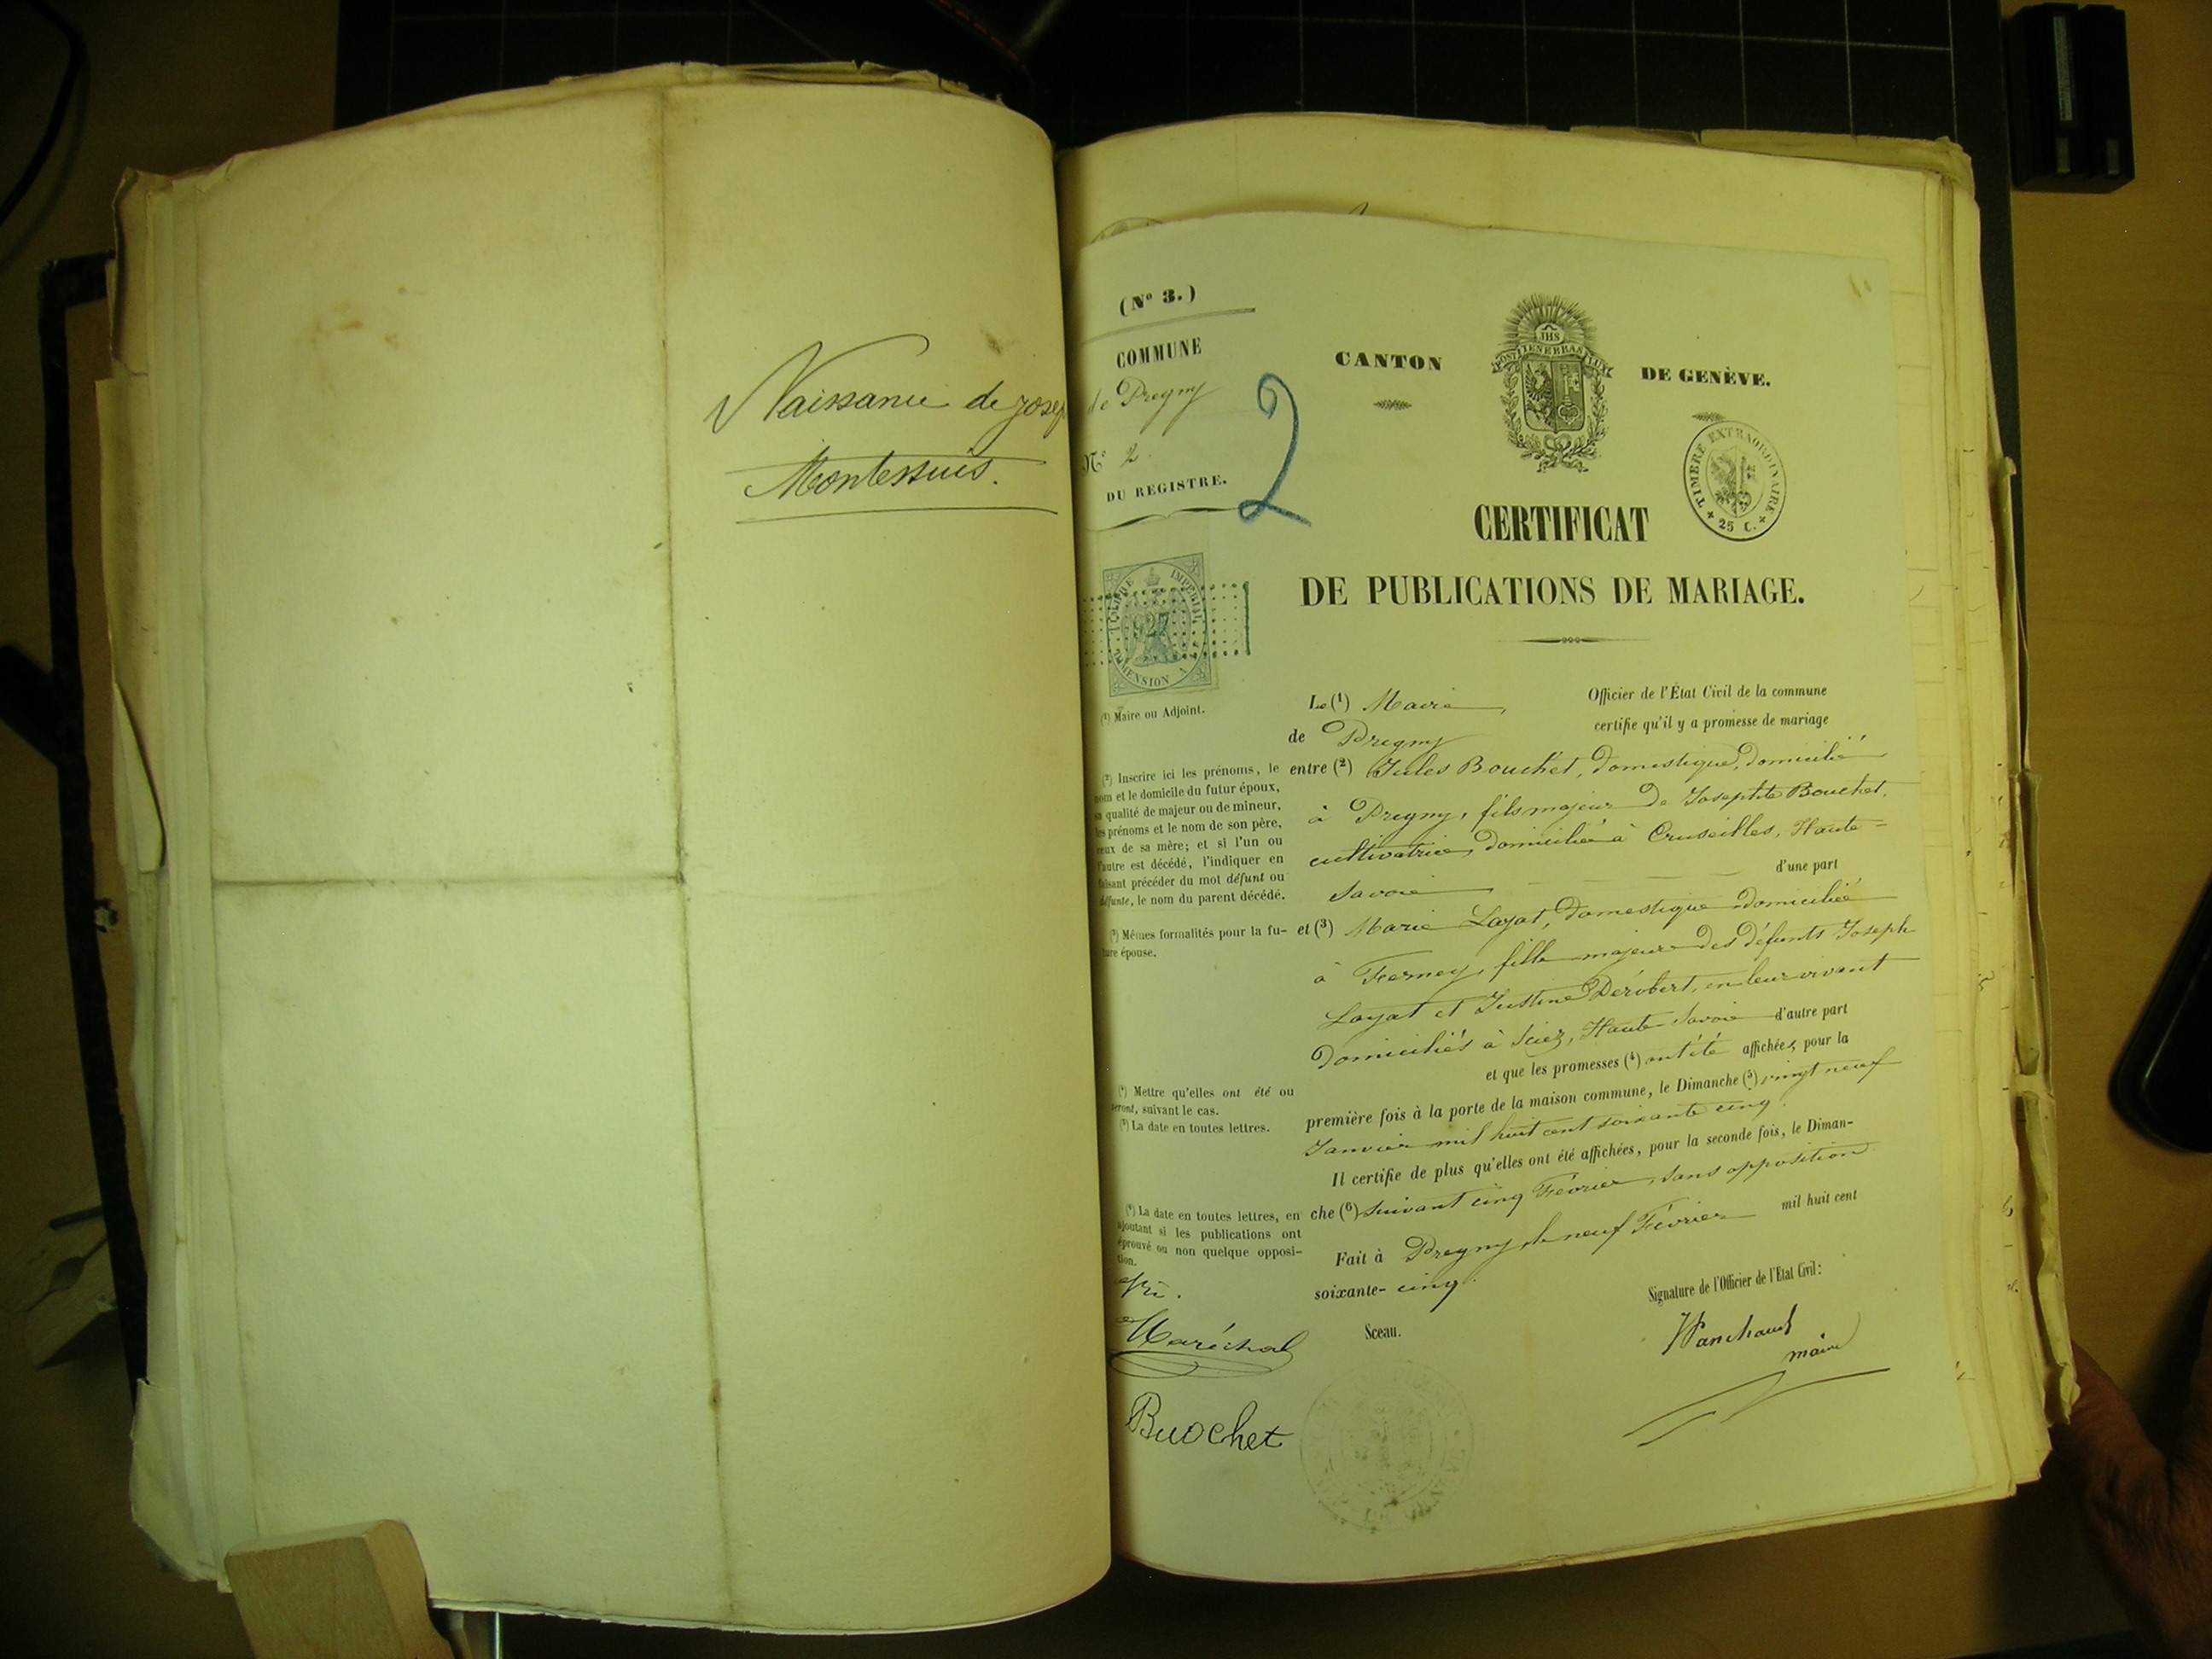 Naissance de Josep
Montessuis.
(Nº 3.)
COMMUNE
de Pregny
Nº 2.
DU REGISTRE.
2
CANTON
DE GENÈVE.
JHS
POST TENEBRAS LUX
TIMBRE EXTRAORDINAIRE
25 C.
CERTIFICAT
DE PUBLICATIONS DE MARIAGE.
TIMBRE IMPÉRIAL
927
DIMENSION
(¹) Maire ou Adjoint.
Le (¹) Maire
Officier de l'État Civil de la commune
de Pregny
certifie qu'il y a promesse de mariage
entre (²) Jules Bouchet, domestique, domicilié
à Pregny, fils majeur de Josephte Bouchet,
cultivatrice, domiciliée à Cruseilles, Haute-
Savoie
d'une part
(²) Inscrire ici les prénoms, le
nom et le domicile du futur époux,
sa qualité de majeur ou de mineur,
les prénoms et le nom de son père,
ceux de sa mère; et si l'un ou
l'autre est décédé, l'indiquer en
faisant précéder du mot défunt ou
défunte, le nom du parent décédé.
et (³) Marie Layat, domestique domiciliée
à Ferney, fille majeure des défunts Joseph
Layat et Justine Dérobert, en leur vivant
domiciliés à Sciez, Haute-Savoie d'autre part
(³) Mêmes formalités pour la fu-
ture épouse.
et que les promesses (⁴) ont été affichées, pour la
première fois à la porte de la maison commune, le Dimanche (⁵) vingt neuf
Janvier mil huit cent soixante cinq.
(⁴) Mettre qu'elles ont été ou
seront, suivant le cas.
(⁵) La date en toutes lettres.
Il certifie de plus qu'elles ont été affichées, pour la seconde fois, le Diman-
che (⁶) suivant cinq Février, sans opposition
(⁶) La date en toutes lettres, en
ajoutant si les publications ont
éprouvé ou non quelque opposi-
tion.
Fait à Pregny, le neuf Février mil huit cent
soixante-cinq.
Signature de l'Officier de l'État Civil:
Sceau.
Panchaud
maire
Maréchal
Buochet